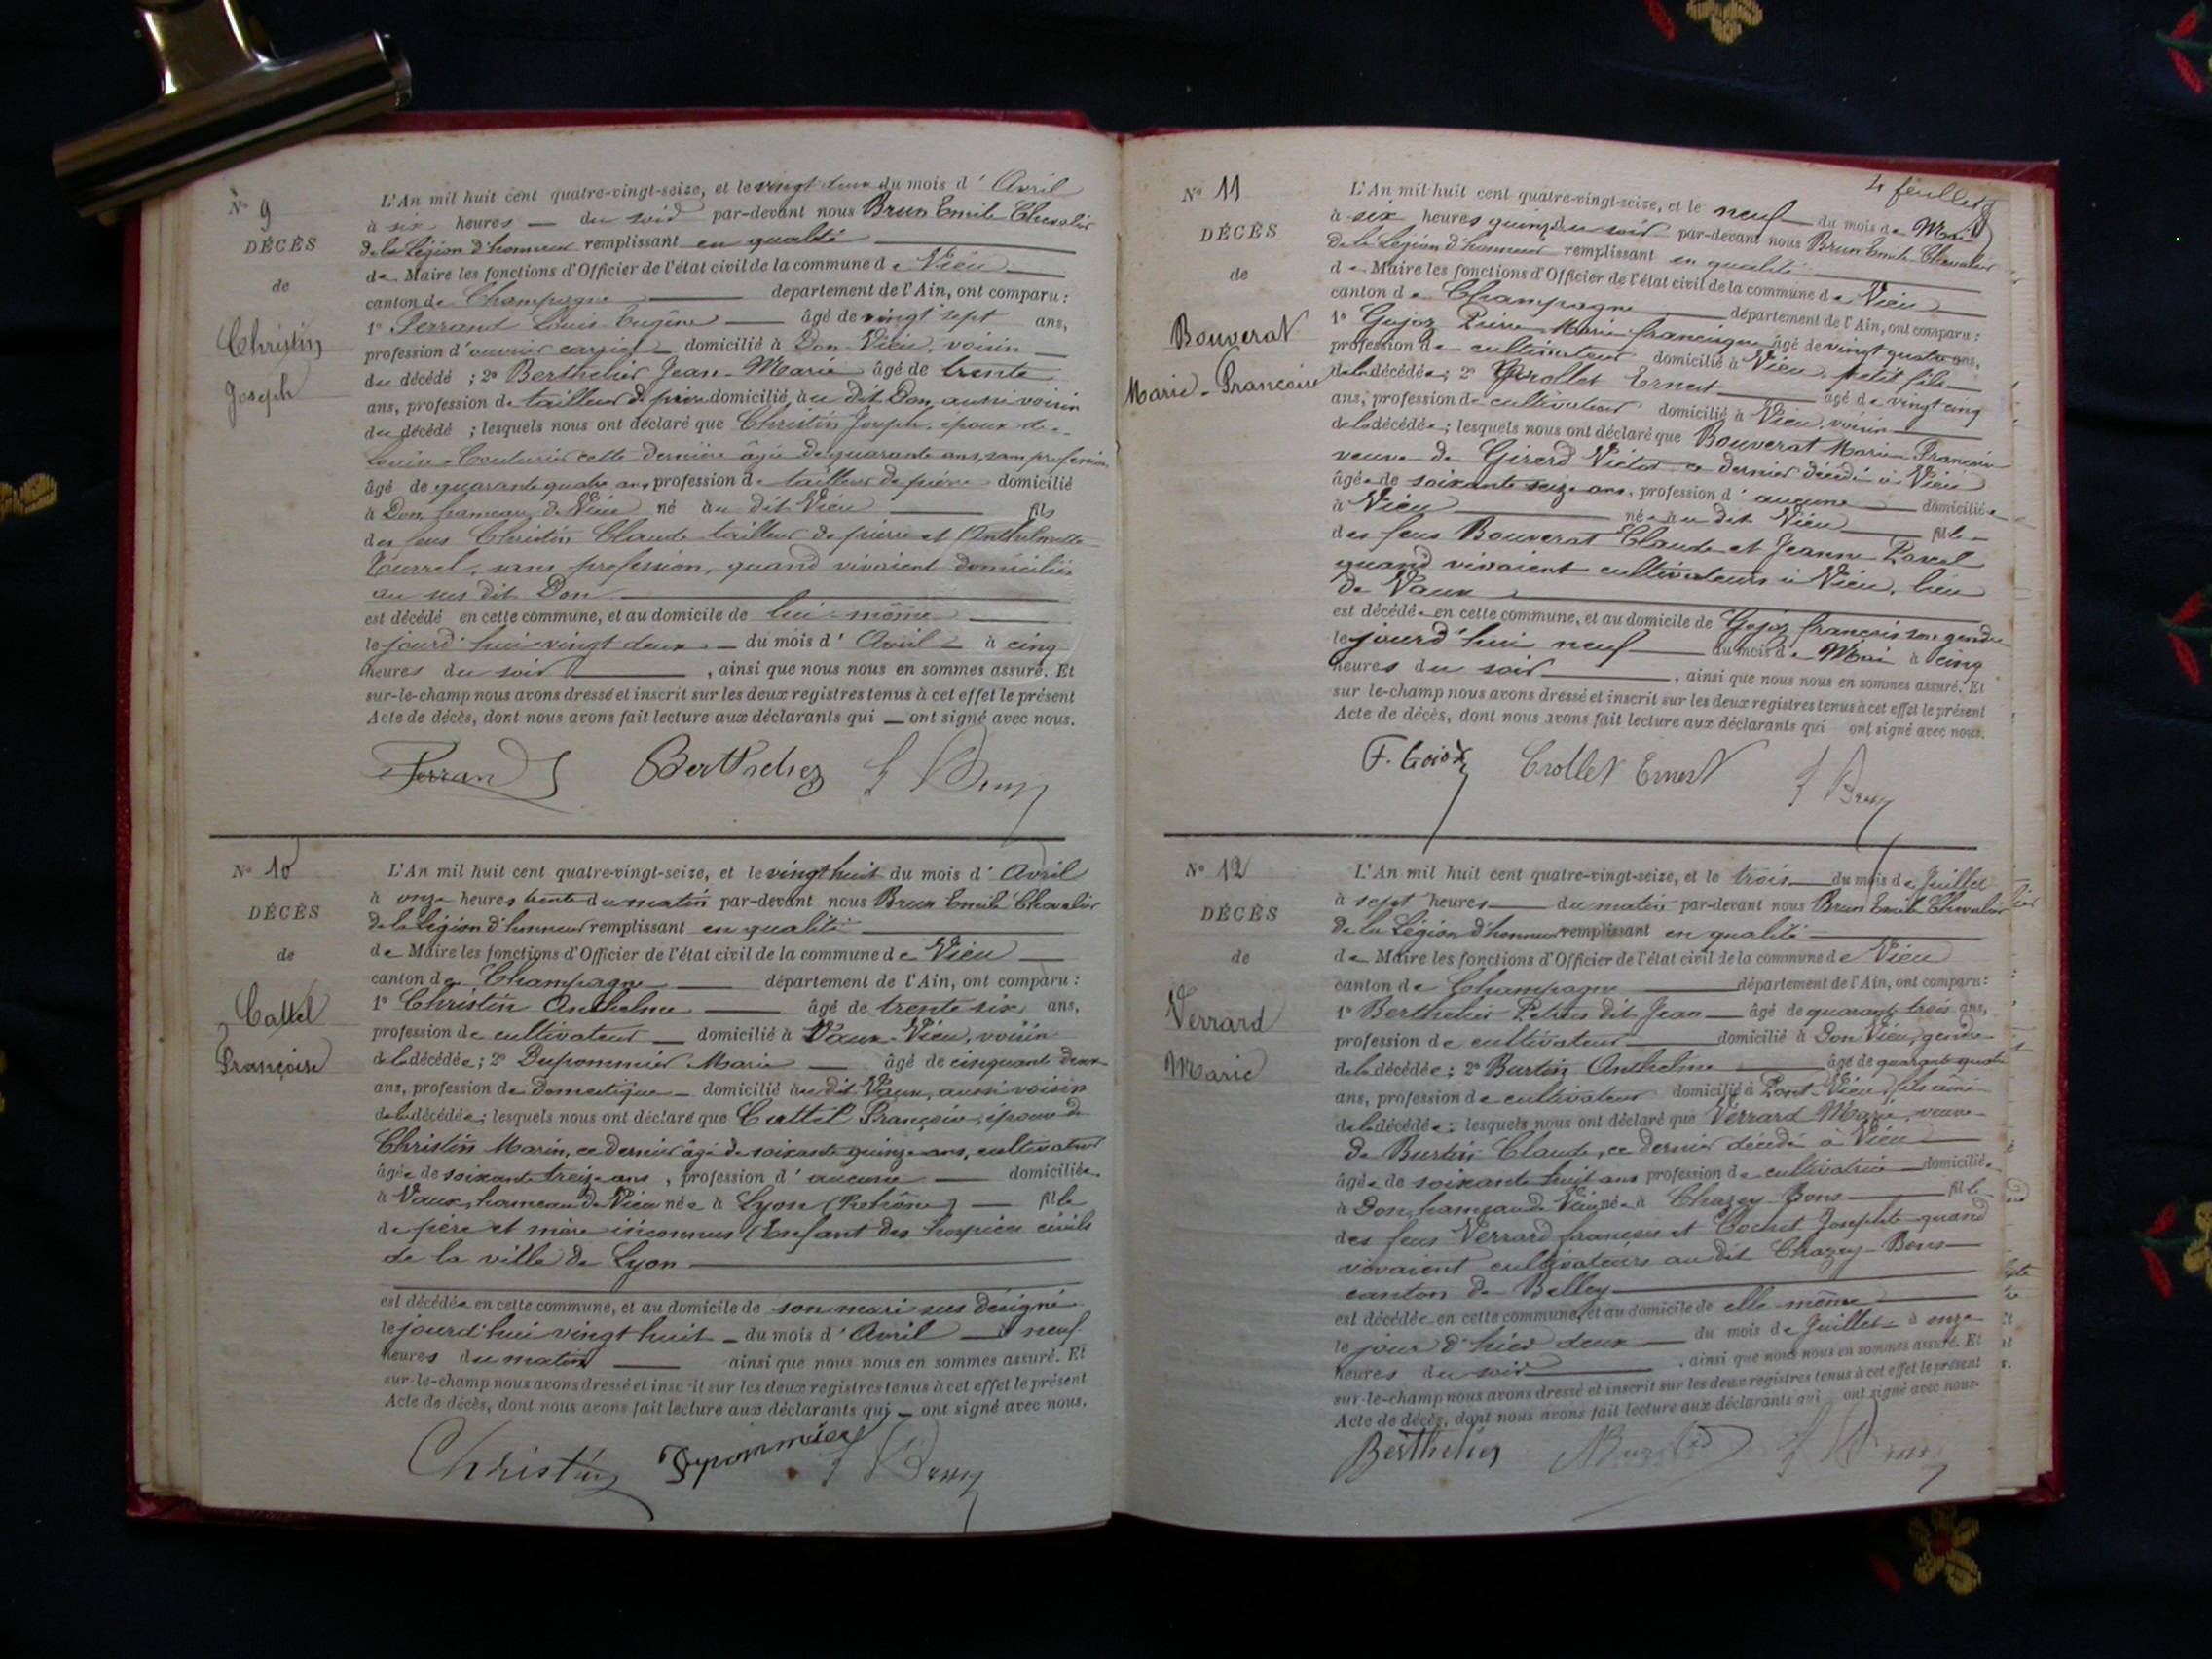 N° 9
DÉCÈS
de
Christin
Joseph
L'An mil huit cent quatre-vingt-seize, et le vingt deux du mois d' Avril
à six heures — du soir par-devant nous Brun Emile Chevalier
de la Légion d'honneur remplissant en qualité
de Maire les fonctions d'Officier de l'état civil de la commune de Vieu
canton de Champagne département de l'Ain, ont comparu :
1° Perrand Louis Eugène âgé de vingt sept ans,
profession d'ouvrier carrier domicilié à Don-Vieu, voisin
du décédé ; 2° Berthelier Jean-Marie âgé de trente
ans, profession de tailleur de pierre domicilié au dit Don, aussi voisin
du décédé ; lesquels nous ont déclaré que Christin Joseph, époux de
Louise Couturier cette dernière âgée de quarante ans, sans profession
âgé de quarante quatre ans profession de tailleur de pierre domicilié
à Don hameau de Vieu né au dit Vieu fils
des feus Christin Claude tailleur de pierre et Anthelmette
Tourrel, sans profession, quand vivaient domiciliés
au sus dit Don
est décédé en cette commune, et au domicile de lui-même
le jourd'hui vingt deux — du mois d' Avril à cinq
heures du soir , ainsi que nous nous en sommes assuré. Et
sur-le-champ nous avons dressé et inscrit sur les deux registres tenus à cet effet le présent
Acte de décès, dont nous avons fait lecture aux déclarants qui — ont signé avec nous.
Perrand Berthelier E Brun
N° 10
DÉCÈS
de
Cattel
Françoise
L'An mil huit cent quatre-vingt-seize, et le vingt huit du mois d' Avril
à onze heures trente du matin par-devant nous Brun Emile Chevalier
de la Légion d'honneur remplissant en qualité
de Maire les fonctions d'Officier de l'état civil de la commune de Vieu
canton de Champagne département de l'Ain, ont comparu :
1° Christin Anthelme âgé de trente six ans,
profession de cultivateur domicilié à Vaux-Vieu, voisin
de la décédée ; 2° Dupommier Marie âgé de cinquante deux
ans, profession de domestique domicilié au dit Vaux, aussi voisin
de la décédée ; lesquels nous ont déclaré que Cattel Françoise, épouse de
Christin Marin, ce dernier âgé de soixante quinze ans, cultivateur
âgée de soixante treize ans , profession d' aucune domiciliée
à Vaux, hameau de Vieu née à Lyon (Rhône) fille
de père et mère inconnus (Enfant des hospices civils
de la ville de Lyon
est décédée en cette commune, et au domicile de son mari sus désigné
le jourd'hui vingt huit — du mois d' Avril à neuf
heures du matin ainsi que nous nous en sommes assuré. Et
sur-le-champ nous avons dressé et inscrit sur les deux registres tenus à cet effet le présent
Acte de décès, dont nous avons fait lecture aux déclarants qui — ont signé avec nous.
Christin Dupommier E Brun
4e feuillet
N° 11
DÉCÈS
de
Bouverat
Marie-Françoise
L'An mil huit cent quatre-vingt-seize, et le neuf du mois de Mai
à six heures quinze du soir par-devant nous Brun Emile Chevalier
de la Légion d'honneur remplissant en qualité
de Maire les fonctions d'Officier de l'état civil de la commune de Vieu
canton de Champagne département de l'Ain, ont comparu :
1° Gojoz Pierre Marie francisque âgé de vingt quatre ans,
profession de cultivateur domicilié à Vieu, petit fils
de la décédée ; 2° Crollet Ernest âgé de vingt cinq
ans, profession de cultivateur domicilié à Vieu, voisin
de la décédée ; lesquels nous ont déclaré que Bouverat Marie Françoise
veuve de Girerd Victor ce dernier décédé à Vieu
âgée de soixante seize ans, profession d' aucune domiciliée
à Vieu née au dit Vieu fille
des feus Bouverat Claude et Jeanne Pavel
quand vivaient cultivateurs à Vieu, lieu
de Vaux
est décédée en cette commune, et au domicile de Gojoz francois son gendre
le jourd'hui neuf du mois de Mai à cinq
heures du soir , ainsi que nous nous en sommes assuré. Et
sur-le-champ nous avons dressé et inscrit sur les deux registres tenus à cet effet le présent
Acte de décès, dont nous avons fait lecture aux déclarants qui ont signé avec nous.
F. Gojoz Crollet Ernest E Brun
N° 12
DÉCÈS
de
Verrard
Marie
L'An mil huit cent quatre-vingt-seize, et le trois du mois de Juillet
à sept heures du matin par-devant nous Brun Emile Chevalier
de la Légion d'honneur remplissant en qualité
de Maire les fonctions d'Officier de l'état civil de la commune de Vieu
canton de Champagne département de l'Ain, ont comparu :
1° Berthelier Petrus dit Jean âgé de quarante trois ans,
profession de cultivateur domicilié à Don Vieu, gendre
de la décédée ; 2° Burtin Anthelme âgé de quarante quatre
ans, profession de cultivateur domicilié à Pont-Vieu, fils aîné
de la décédée ; lesquels nous ont déclaré que Verrard Marie, veuve
de Burtin Claude, ce dernier décédé à Vieu
âgée de soixante huit ans profession de cultivatrice domiciliée
à Don, hameau de Vieu née à Chazey-Bons fille
des feus Verrard francois et Cochet Josephte quand
vivaient cultivateurs au dit Chazey-Bons
canton de Belley
est décédée en cette commune, et au domicile de elle-même
le jour d'hier deux du mois de Juillet à onze
heures du soir , ainsi que nous nous en sommes assuré. Et
sur-le-champ nous avons dressé et inscrit sur les deux registres tenus à cet effet le présent
Acte de décès, dont nous avons fait lecture aux déclarants qui ont signé avec nous.
Berthelier Burtin E Brun